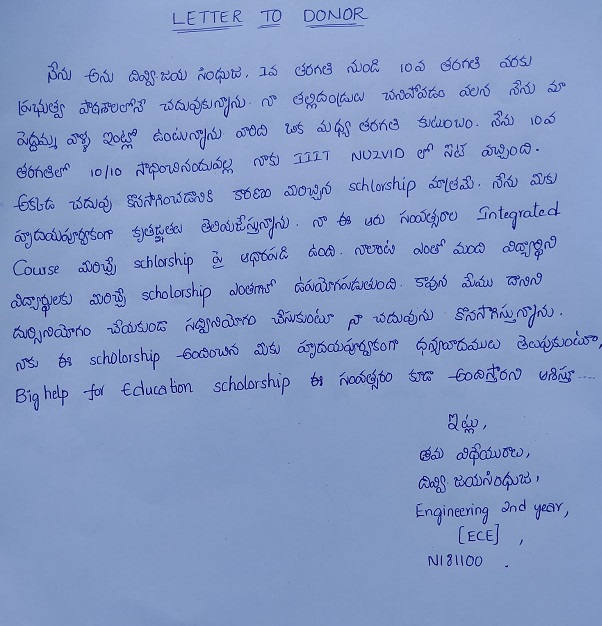 LETTER TO DONOR
నేను అను దివ్వి జయ సింధుజ. 1వ తరగతి నుండి 10వ తరగతి వరకు
ప్రభుత్వ పాఠశాలలోనే చదువుకున్నాను. నా తల్లిదండ్రులు చనిపోవడం వలన నేను మా
పెద్దమ్మ వాళ్ళ ఇంట్లో ఉంటున్నాను వారిది ఒక మధ్య తరగతి కుటుంబం. నేను 10వ
తరగతిలో 10/10 సాధించినందువల్ల నాకు IIIT NUZVID లో సీట్ వచ్చింది.
అక్కడ చదువు కొనసాగించడానికి కారణం మీరిచ్చిన schlorship మాత్రమే. నేను మీకు
హృదయపూర్వకంగా కృతజ్ఞతలు తెలియచేస్తున్నాను. నా ఈ ఆరు సంవత్సరాల Integrated
Course మీరిచ్చే schlorship పై ఆధారపడి ఉంది. నాలాంటి ఎంతో మంది విద్యార్థిని
విద్యార్థులకు మీరిచ్చే scholorship ఎంతగానో ఉపయోగపడుతుంది. కావున మేము దానిని
దుర్వినియోగం చేయకుండా సద్వినియోగం చేసుకుంటూ నా చదువును కొనసాగిస్తున్నాను.
నాకు ఈ scholorship అందించిన మీకు హృదయపూర్వకంగా ధన్యవాదములు తెలుపుకుంటూ,
Big help for Education scholorship ఈ సంవత్సరం కూడా అందిస్తారని ఆశిస్తూ.....
ఇట్లు,
తమ విధేయురాలు,
దివ్వి జయసింధుజ,
Engineering 2nd year,
[ECE] ,
N181100 .